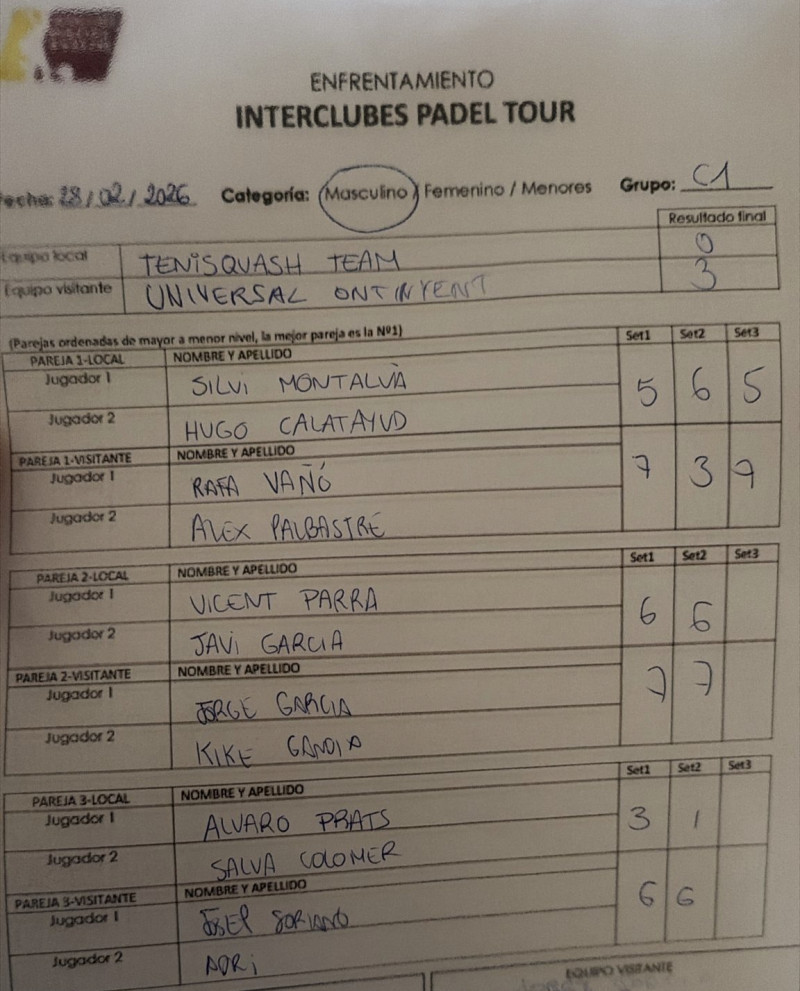 ENFRENTAMIENTO
INTERCLUBES PADEL TOUR
Fecha: 28/02/2026 Categoría: Masculino / Femenino / Menores Grupo: C1
Resultado final
Equipo local TENISQUASH TEAM 0
Equipo visitante UNIVERSAL ONTINYENT 3
(Parejas ordenadas de mayor a menor nivel, la mejor pareja es la Nº1) Set1 Set2 Set3
PAREJA 1-LOCAL NOMBRE Y APELLIDO
Jugador 1 SILVI MONTALVÀ 5 6 5
Jugador 2 HUGO CALATAYUD
PAREJA 1-VISITANTE NOMBRE Y APELLIDO
Jugador 1 RAFA VAÑÓ 7 3 7
Jugador 2 ALEX PALBASTRE
Set1 Set2 Set3
PAREJA 2-LOCAL NOMBRE Y APELLIDO
Jugador 1 VICENT PARRA 6 6
Jugador 2 JAVI GARCIA
PAREJA 2-VISITANTE NOMBRE Y APELLIDO
Jugador 1 JORGE GARCIA 7 7
Jugador 2 KIKE GANDIA
Set1 Set2 Set3
PAREJA 3-LOCAL NOMBRE Y APELLIDO
Jugador 1 ALVARO PRATS 3 1
Jugador 2 SALVA COLOMER
PAREJA 3-VISITANTE NOMBRE Y APELLIDO
Jugador 1 JOSEP SORIANO 6 6
Jugador 2 ADRI
EQUIPO VISITANTE